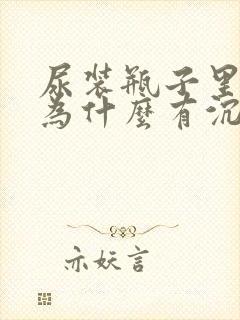 尿装瓶子里
為什麼有沉
亦妖言